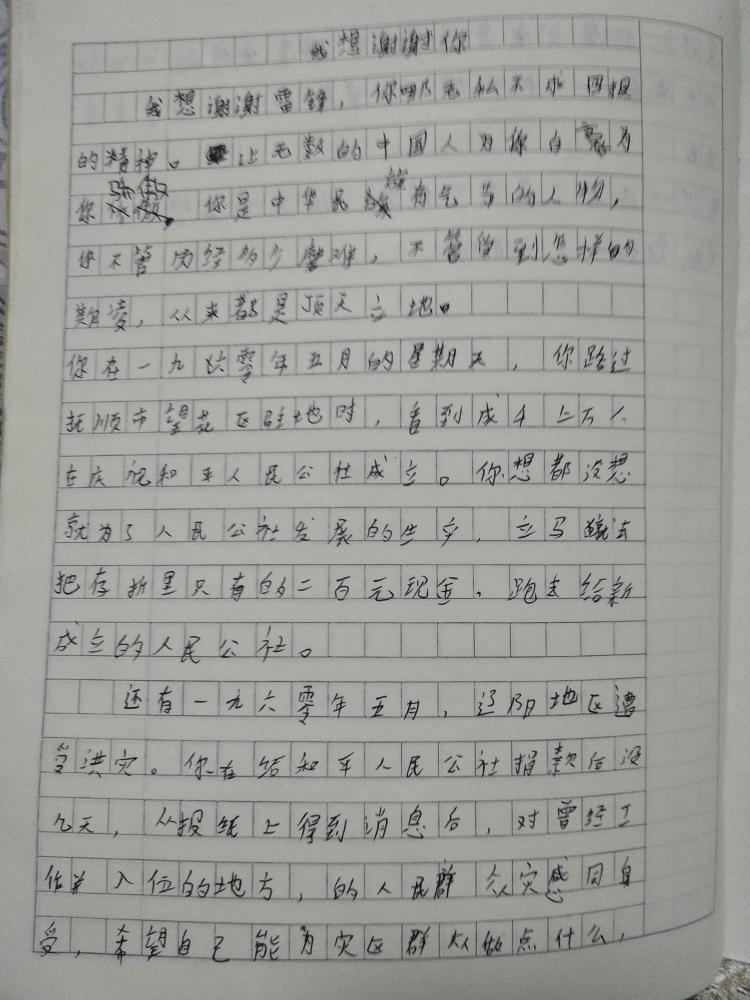 我想谢谢你
我想谢谢雷锋，你哪无私不求回报
的精神。让无数的中国人为你自豪为
你骄傲。你是中华民族有气马的人物，
你不管历经多少磨难，不管受到怎样的
欺凌，从来都是顶天立地。
你在一九六零年五月的星期天，你路过
抚顺市望花区驻地时，看到成千上万人
在庆祝和平人民公社成立。你想都没想
就为了人民公社发展的生产，立马就去
把存折里只有的二百元现金，跑去给新
成立的人民公社。
还有一九六零年五月，辽阳地区遭
受洪灾。你在给和平人民公社捐款后没
几天，从报纸上得到消息后，对曾经工
作并入伍的地方，的人民群众灾感同身
受，希望自己能为灾区群众做点什么，